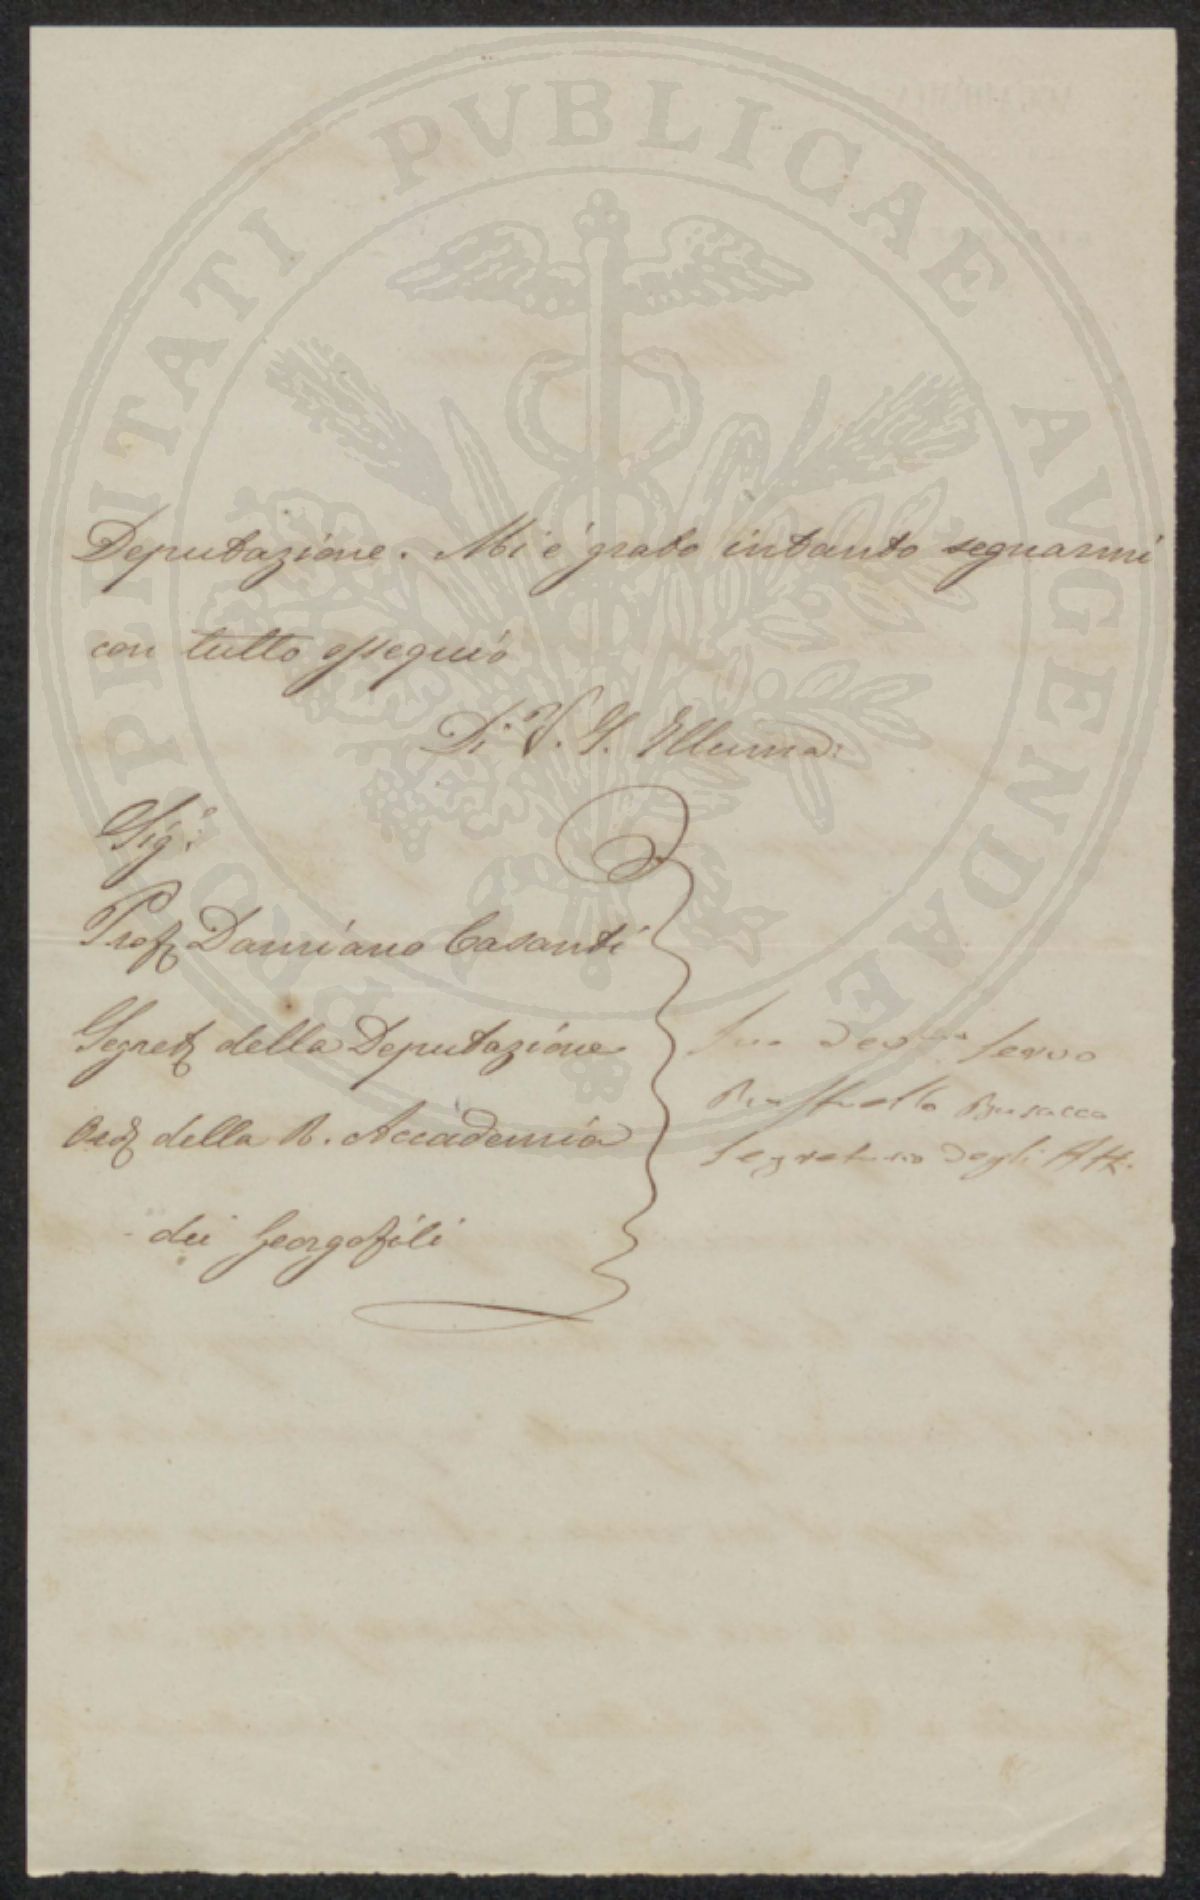 PROSPERITATI PVBLICAE AVGENDAE
Deputazione. Mi è grato intanto segnarmi
con tutto ossequio
Di V. S. Illuma:
Sig.e
Prof. Damiano Casanti
Segret. della Deputazione
Ord. della R. Accademia
dei Georgofili
Suo Devmo Servo
Raffaello Busacca
Segretario degli Atti.